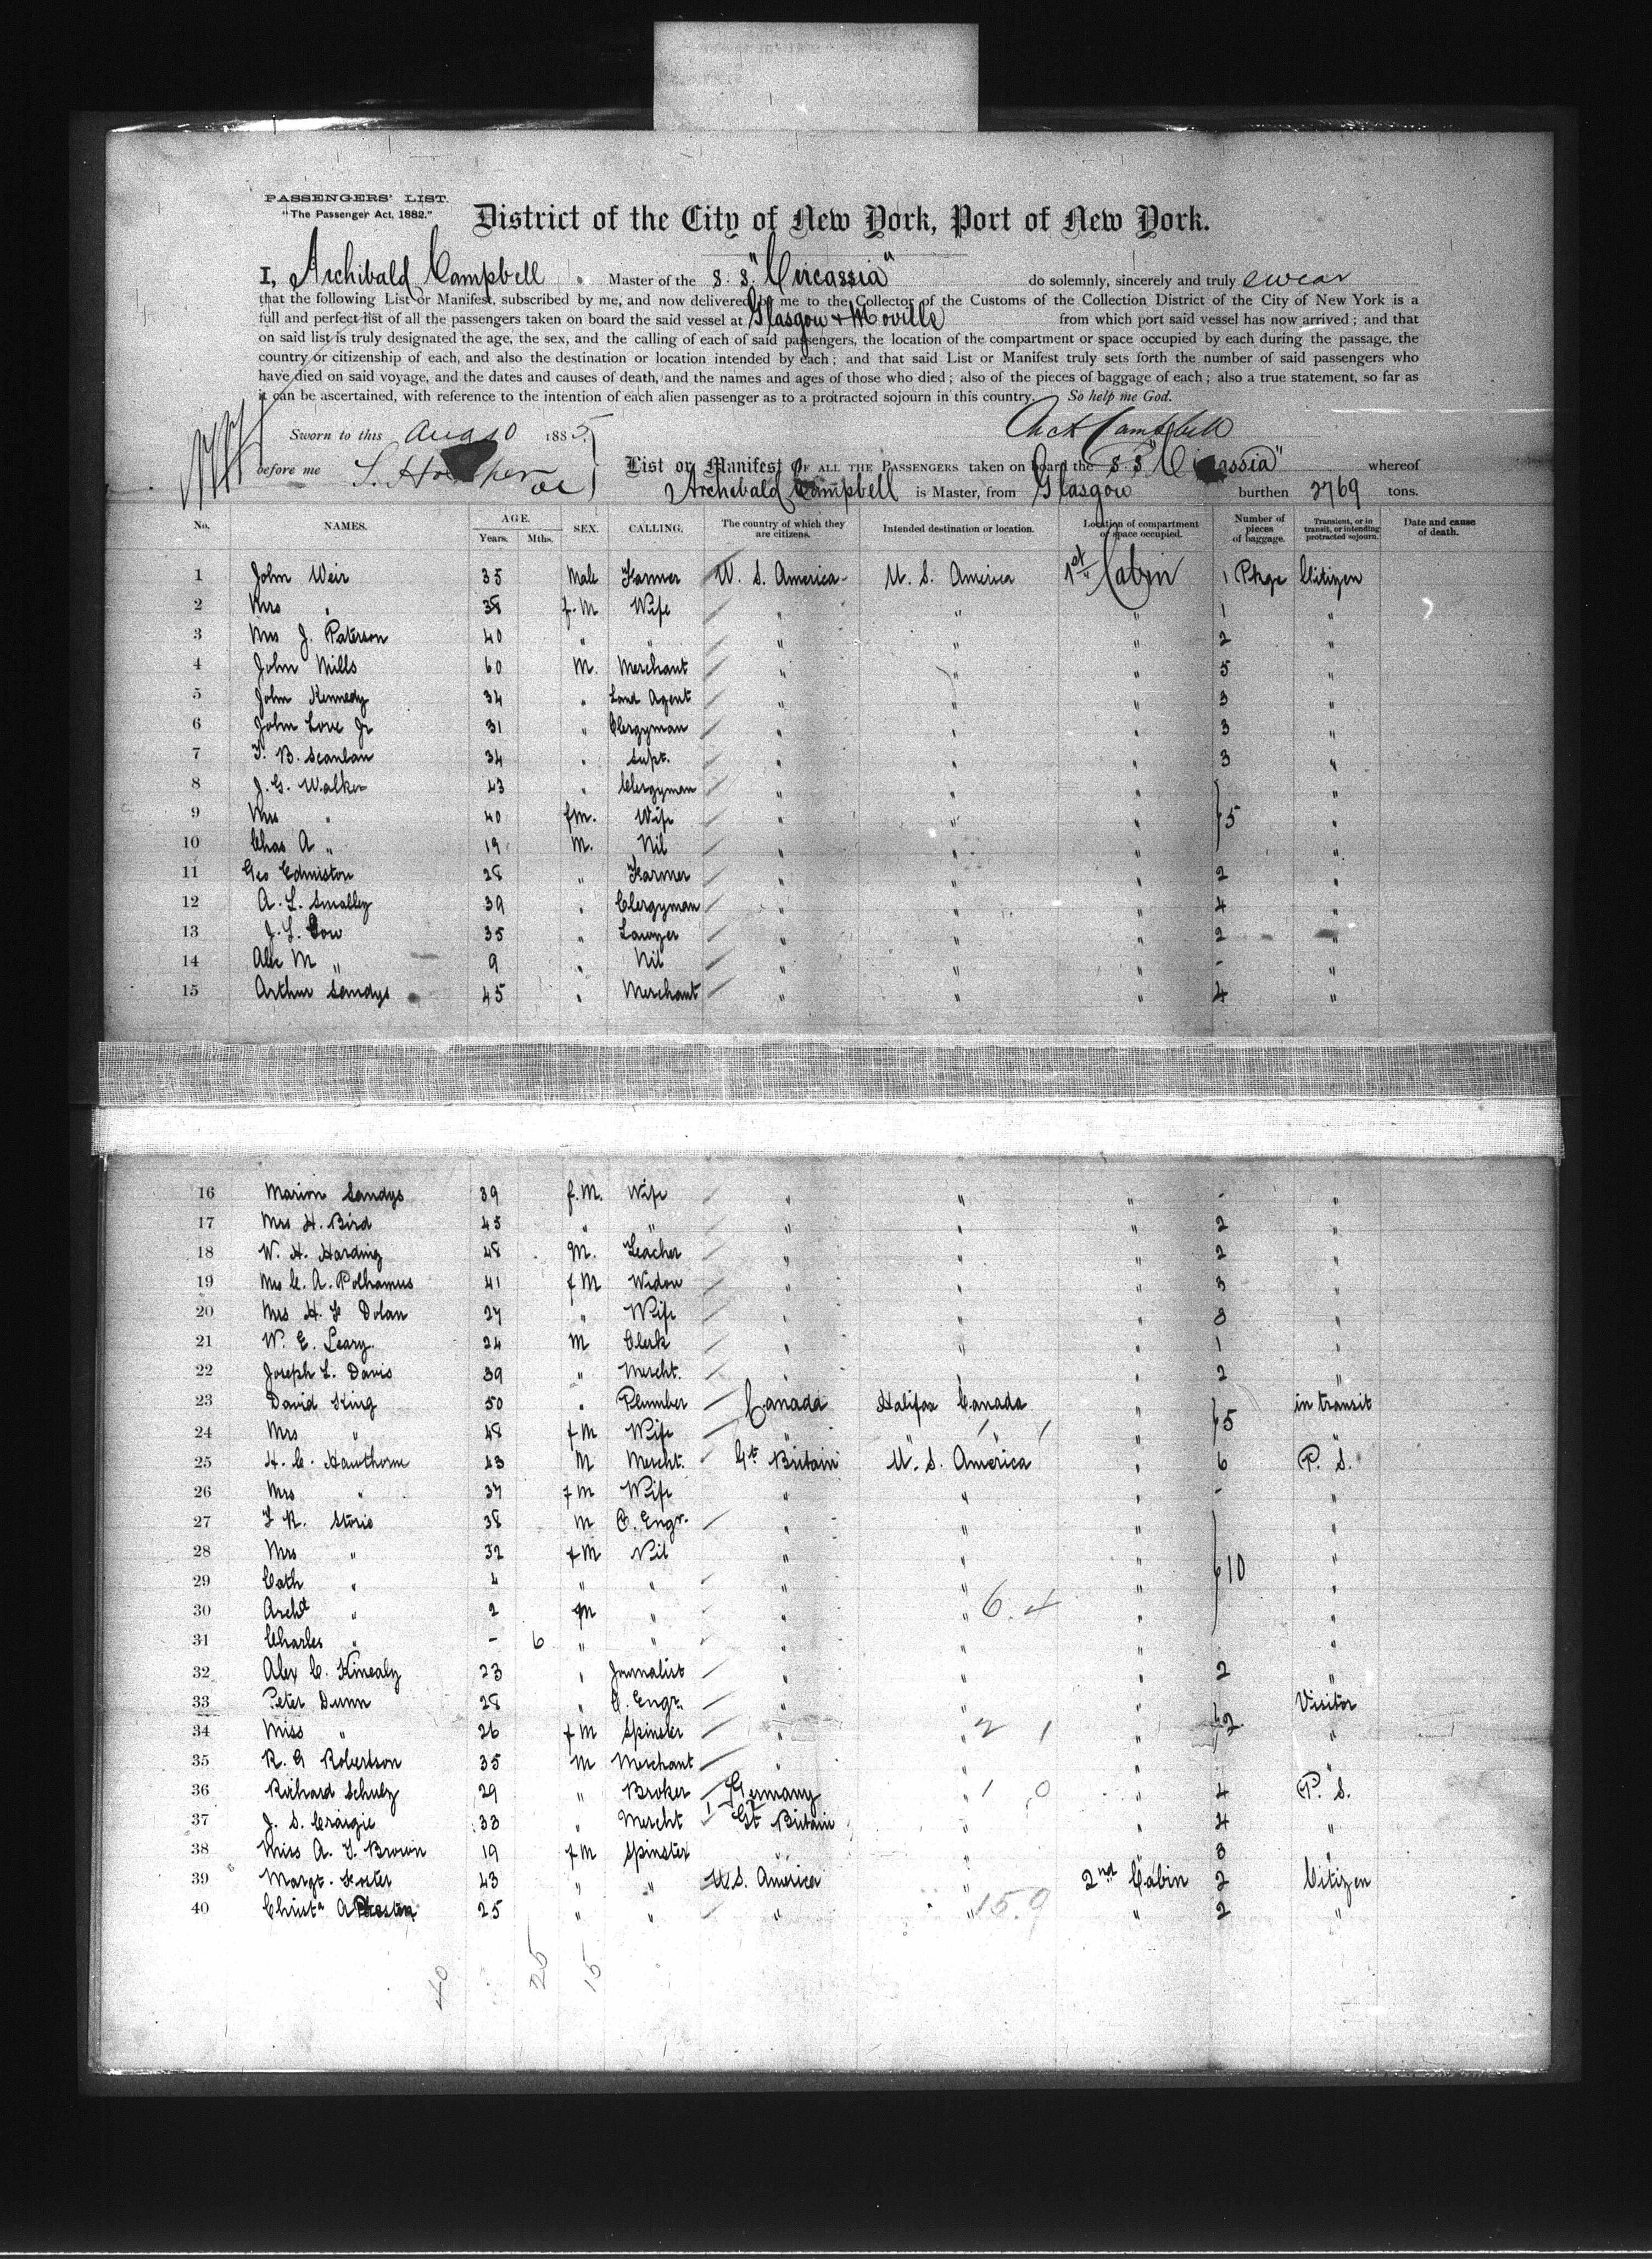 PASSENGERS' LIST.
"The Passenger Act, 1882."
District of the City of New York, Port of New York.
I, Archibald Campbell Master of the S. S. "Circassia" do solemnly, sincerely and truly swear
that the following List or Manifest, subscribed by me, and now delivered by me to the Collector of the Customs of the Collection District of the City of New York is a
full and perfect list of all the passengers taken on board the said vessel at Glasgow & Moville from which port said vessel has now arrived; and that
on said list is truly designated the age, the sex, and the calling of each of said passengers, the location of the compartment or space occupied by each during the passage, the
country or citizenship of each, and also the destination or location intended by each; and that said List or Manifest truly sets forth the number of said passengers who
have died on said voyage, and the dates and causes of death, and the names and ages of those who died; also of the pieces of baggage of each; also a true statement, so far as
it can be ascertained, with reference to the intention of each alien passenger as to a protracted sojourn in this country. So help me God.
Sworn to this Aug 10 1885 Archd Campbell
before me
List or Manifest OF ALL THE PASSENGERS taken on board the S. S. "Circassia" whereof
Archibald Campbell is Master, from Glasgow burthen 2769 tons.
No. NAMES. AGE. Years. Mths. SEX. CALLING. The country of which they are citizens. Intended destination or location. Location of compartment or space occupied. Number of pieces of baggage. Transient, or in transit, or intending protracted sojourn. Date and cause of death.
1 John Weir 35 Male Farmer U. S. America U. S. America 1st Cabin 1 Pkge Citizen
2 Mrs " 38 f. M Wife " " " 1 "
3 Mrs J. Paterson 40 " " " " " 2 "
4 John Mills 60 M. Merchant " " " 5 "
5 John Kennedy 34 " Land Agent " " " 3 "
6 John Love Jr 31 " Clergyman " " " 3 "
7 T. B. Scanlan 34 " Supt. " " " 3 "
8 J. G. Walker 43 " Clergyman " " " "
9 Mrs " 40 fM. Wife " " " 5 "
10 Chas A " 19 M. Nil " " " "
11 Geo Edmiston 28 " Farmer " " " 2 "
12 A. L. Smalley 39 " Clergyman " " " 4 "
13 J. L. 35 " Lawyer " " " 2 "
14 Alec M " 9 " Nil " " " - "
15 Arthur Sandys 45 " Merchant " " " 4 "
16 Marion Sandys 39 f. M. Wife " " " - "
17 Mrs H. Bird 45 " " " " " 2 "
18 W. H. Harding 48 M. Teacher " " " 2 "
19 Mrs C. A. Polhamus 41 f M Widow " " " 3 "
20 Mrs H. F Dolan 27 " Wife " " " 8 "
21 W. E. Leary. 24 M Clerk " " " 1 "
22 Joseph L. Davis 39 " Mercht. " " " 2 "
23 David King 50 " Plumber Canada Halifax Canada " in transit
24 Mrs " 48 f M Wife " " " " 5 "
25 H. C. Hawthorn 43 M Mercht. Gt Britain U. S. America " 6 P. S.
26 Mrs " 37 f M Wife " " " - "
27 T R. Storie 38 M C. Engr. " " " "
28 Mrs " 32 f M Nil " " " "
29 Cath " 4 " " " " " 10 "
30 Archd " 2 M " " " 6.4 " "
31 Charles " - 6 " " " " " "
32 Alex C. Kinealy 23 " Journalist " " " 2 "
33 Peter Dunn 28 " C. Engr. " " " Visitor
34 Miss " 26 f M Spinster " " 2 1 " 2 "
35 R. G Robertson 35 M Merchant " " " "
36 Richard Schulz 29 " Broker Germany " 1 0 " 4 P. S.
37 J. S. Craigie 33 " Mercht Gt Britain " " 4 "
38 Miss A. T. Brown 19 f M Spinster " " " 3 "
39 Margt. 43 " " U. S. America " 2nd Cabin 2 Citizen
40 Christa A 25 " " " " 15.9 " 2 "
40 25 15